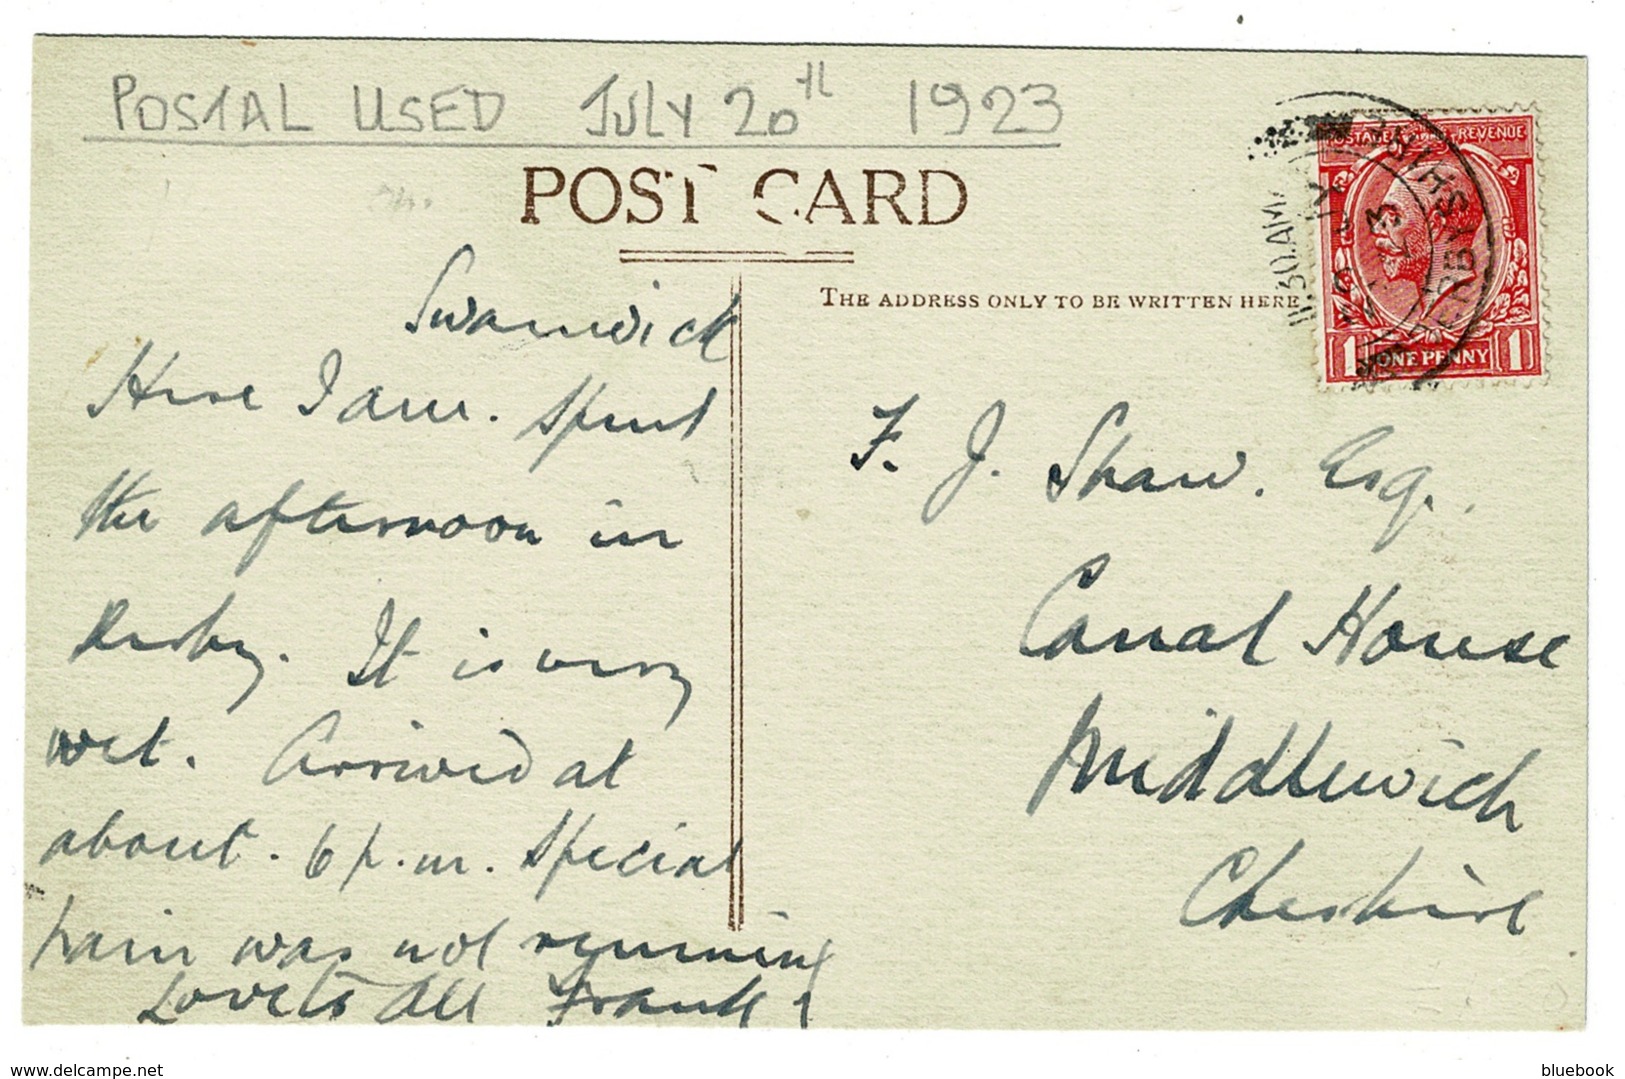 POSTAL USED JULY 20th 1923
POST CARD
THE ADDRESS ONLY TO BE WRITTEN HERE
POSTAGE REVENUE
1 ONE PENNY 1
11.30AM
DERBYSHIRE
Swanwick
Here I am. Spent
the afternoon in
Derby. It is very
wet. Arrived at
about. 6 p.m. Special
train was not running
Love to All Frank
F. J. Shaw. Esq.,
Canal House
Middlewich
Cheshire
www.delcampe.net
bluebook